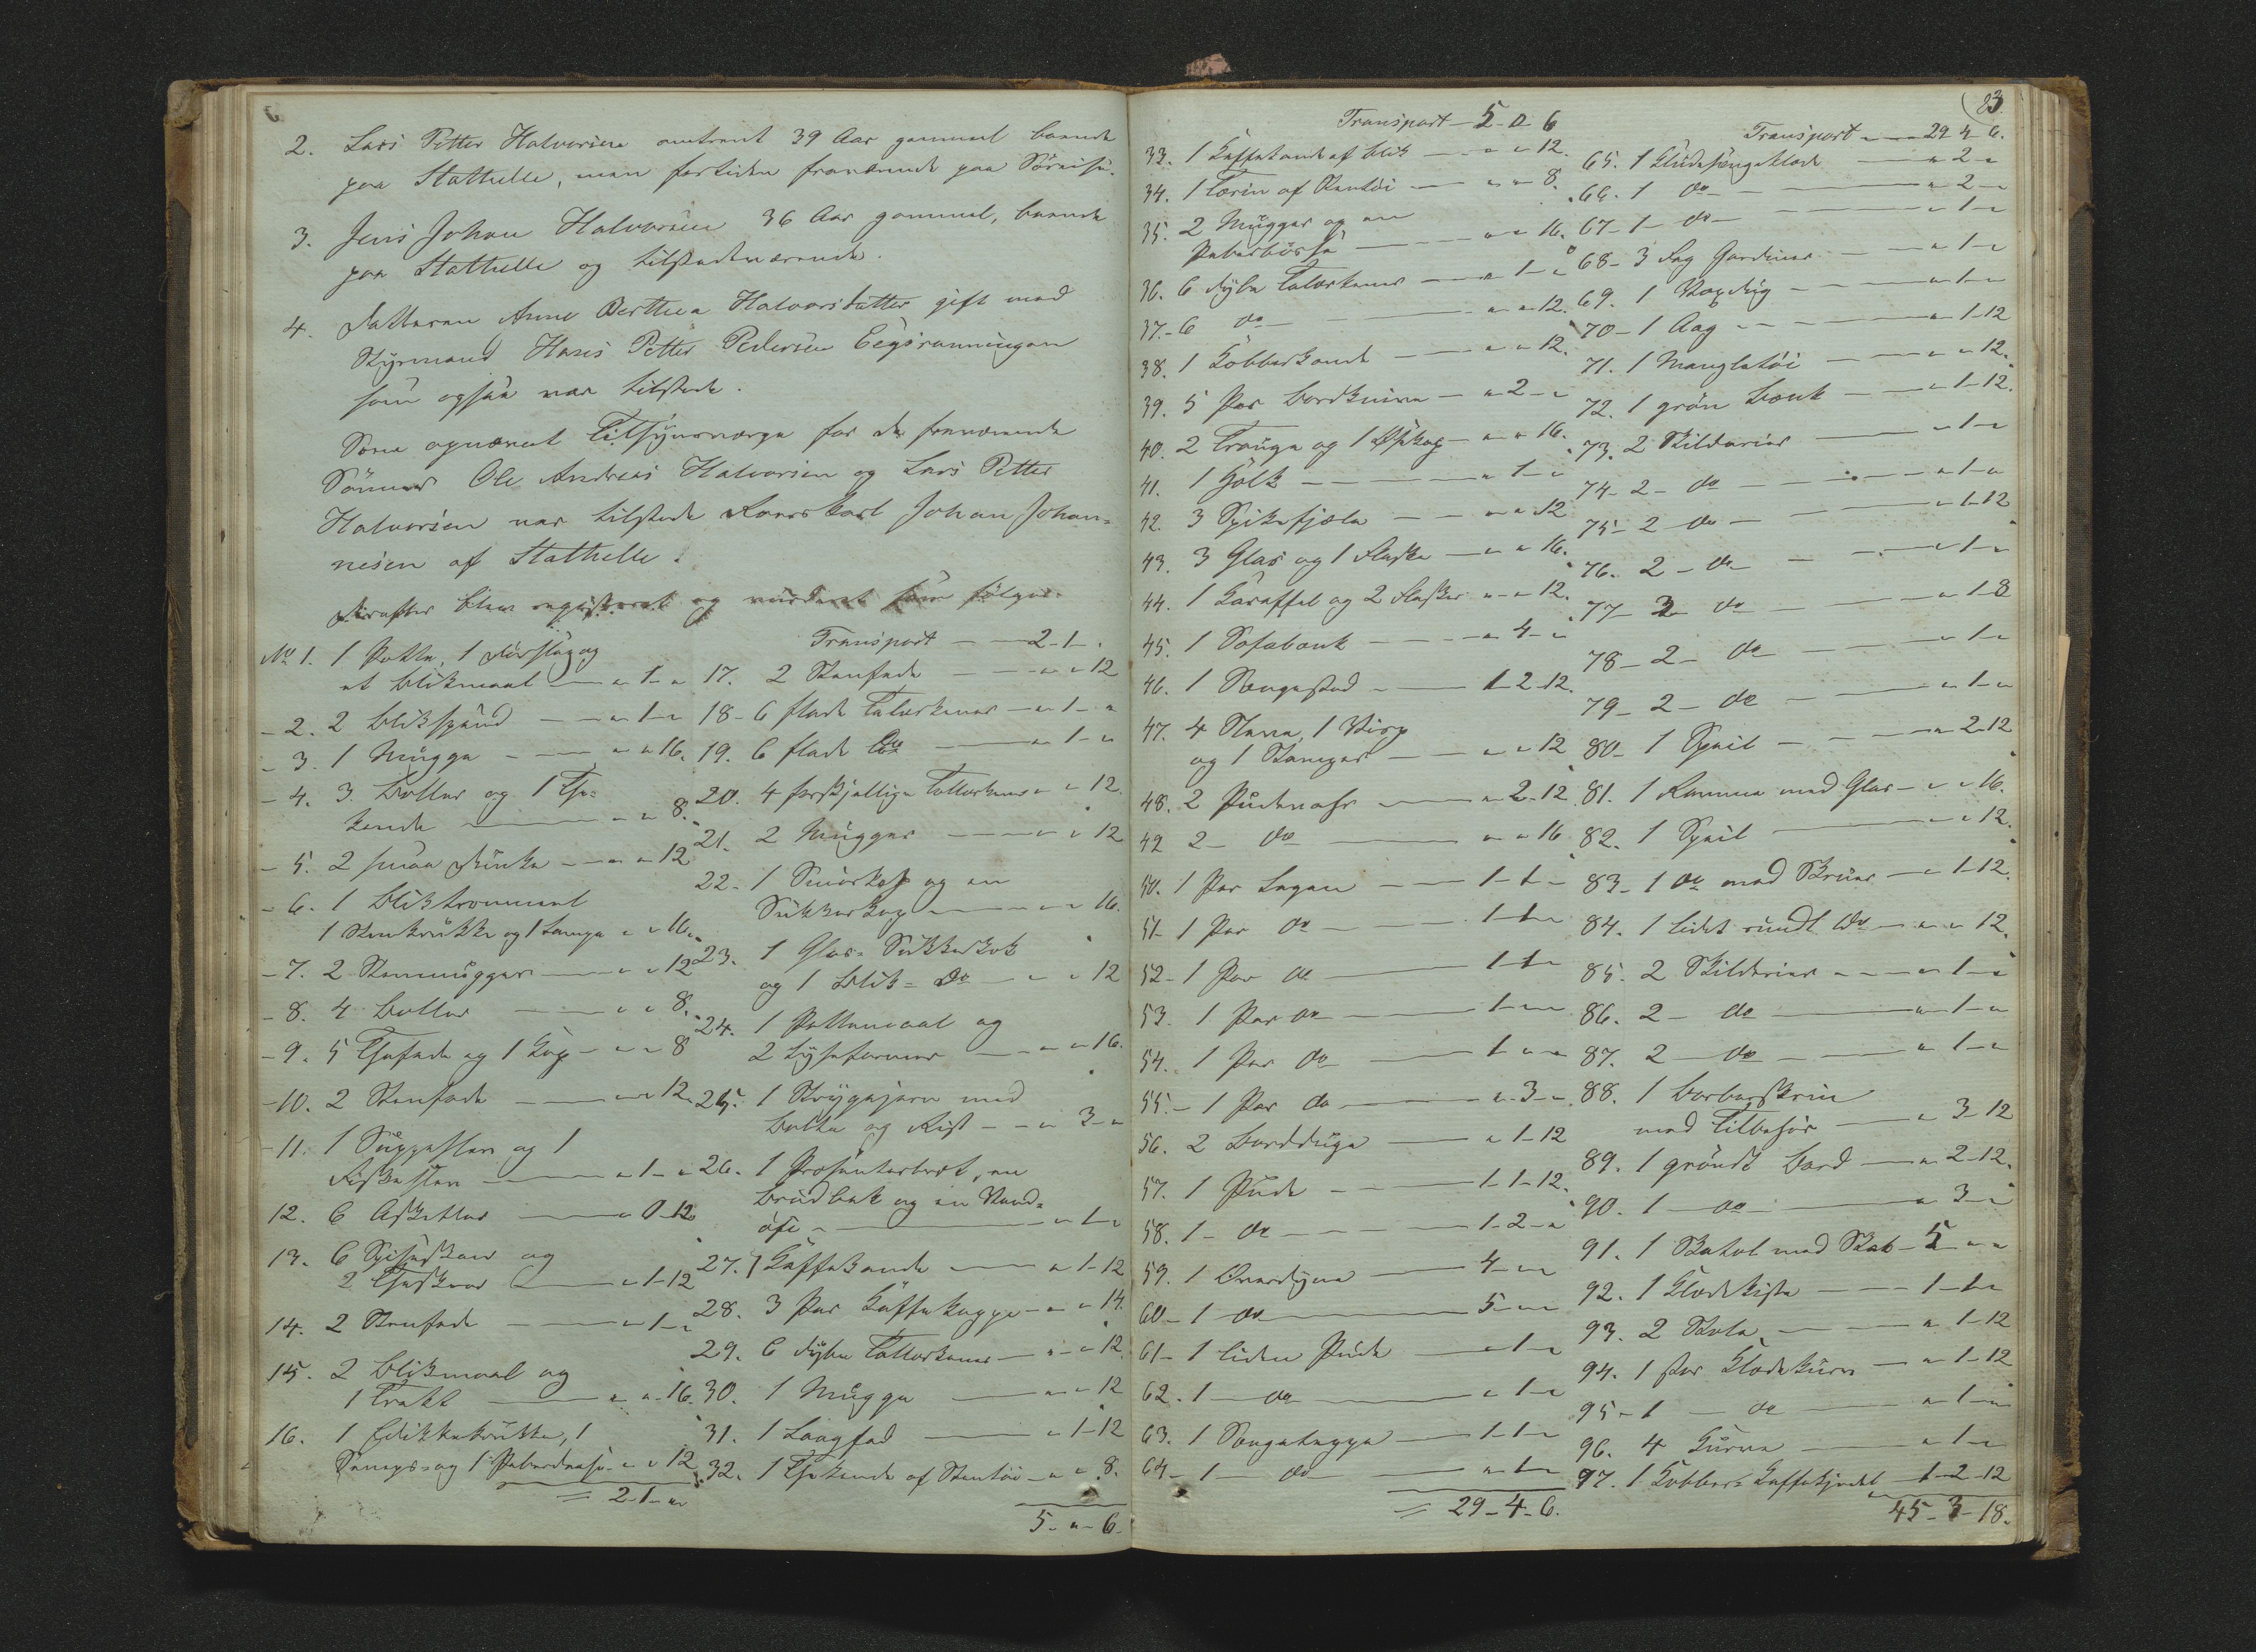 2. Lars Petter Halvorsen omtrent 39 Aar gammel boende
paa Stathelle, men fortiden fraværende paa Söreise.
3. Jens Johan Halvorsen 36 Aar gammel, boende
paa Stathelle og tilstedeværende.
4. Datteren Anne Berthea Halvorsdatter gift med
Styrmand Hans Petter Pedersen
som ogsaa var tilstede.
Som opnævnt Tilsynsværge for de fraværende
Sönner Ole Andreas Halvorsen og Lars Petter
Halvorsen var tilstede Johan Johan=
nesen af Stathelle.
Derefter blev registreret og vurderet som fölger.
No 1. 1 Potte, 1 Dörslag og
et Blikmaal — " 1 "
- 2. 2 Blikspand — " 1 "
- 3. 1 Mugge — " " 16.
- 4. 3 Boller og 1 The=
kande — " " 8.
- 5. 2 smaa Dunke — " " 12
- 6. 1 Bliktrommel
1 Stenkrukke og 1 Lampe " " 16.
- 7. 2 Stenmugger — " " 12
- 8. 4 Boller — " " 8.
- 9. 5 Thefade og 1 Kop — " " 8
- 10. 2 Stenfade — " " 12
- 11. 1 Suppeslev og 1
Fiskeslev — " 1 "
12. 6 Asketter — " 0-12
13. 6 Spiseskeer og
2 Theskeer — " 1-12
14. 2 Stenfade — " 1 "
15. 2 Blikmaal og
1 Trakt — " " 16
16. 1 Edikkekrukke, 1
Senops- og 1 Peberdaase " " 12
= 2-1-"
Transport — 2-1-.
17. 2 Stenfade — " " 12
18- 6 flade Talerkener — " 1 "
19. 6 flade do — " 1 "
20. 4 forskjellige Tallerkener " " 12.
21. 2 Mugger — " " 12
22. 1 Smörkop og en
Sukkerkop — " " 16.
23. 1 Glas= Sukkerkop
og 1 Blik= do — " " 12
24. 1 Pottemaal og
2 Lyseformer — " " 16.
25. 1 Strygejern med
Bolte og Rist — " 3 "
26. 1 Præsenterbræt, en
Brödbak og en Vand=
öse — " 1 "
27. 1 Kaffekande — " 1-12
28. 3 Par Kaffekopper — " " 14.
29. 6 dybe Tallerkener — " " 12
30. 1 Mugge — " " 12
31. 1 Laagfad — " 1-12
32. 1 Thekande af Stentöi — " " 8.
5 - " - 6.
Transport — 5-0-6
33. 1 Kaffekande af Blik — " " 12.
34. 1 Terin af Stentöi — " " 8.
35. 2 Mugger og en
Peberbösse — " " 16.
36. 6 dybe Talerkener — " 1 "
37. 6 do — " " 12.
38. 1 Kobberkande — " " 12.
39. 5 Par Bordknive — " 2 "
40. 2 Trauge og 1 — " " 16.
41. 1 — " 1 "
42. 3 Spikefjæle — " " 12
43. 3 Glas og 1 Flaske — " " 16.
44. 1 Karaffel og 2 Flasker " " 12.
45. 1 Sofabænk — " 4 "
46. 1 Sengested — 1-2-12.
47. 4 1 Visp
og 1 Stamper — " " 12
48. 2 Pudevahr — " 2-12.
49 2 - do — " " 16
50. 1 Par Lagen — 1-1 -
51- 1 Par do — 1-1-"
52- 1 Par do — 1-1-"
53. 1 Par do — 1 " "
54. 1 Par do — 1 " "
55. - 1 Par do — " 3 "
56. 2 Bordduge — " 1-12
57. 1 Pude — 1-1-12.
58. 1 - do — 1-2-"
59. 1 Overdyne — 4 " "
60- 1 do — 5 " "
61- 1 liden Pude — " 1 "
62. 1 do — " 1 "
63. 1 Sengeteppe — 1-1-"
64- 1 do — " 1 "
= 29-4-6.
23.
Transport — 29-4-6.
65. 1 — " 2 "
66. 1 do — " 2 "
67- 1 do — " 1 "
68- 3 Fag Gardiner — " 1 "
69. 1 Voxdug — " 1 "
70- 1 Aag — " 1-12
71. 1 Mangletöi — " " 12.
72. 1 grön Bænk — " 1-12.
73. 2 Skilderier — " 1 "
74- 2 - do — " 1 "
75- 2 do — " 1-12
76. 2 - do — " 1 "
77- 3 do — " 1-8
78- 2 - do — " 1 "
79- 2 - do — " 1 "
80- 1 Speil — " 2-12
81. 1 Ramme med Glas — " " 16.
82. 1 Speil — " " 12.
83- 1 do med Skruer — " 1-12.
84. 1 lidet rundt do — " " 12.
85. 2 Skilderier — " 1 "
86. 2 - do — " 1 "
87. 2 do — " 1 "
88. 1 Barberskrin
med Tilbehör — " 3-12
89. 1 gröndt Bord — " 2-12.
90. 1 do — " 3 "
91. 1 Skatol med Skab — 5 " "
92. 1 Klædekiste — 1-1-"
93. 2 Stole — " 1-12
94. 1 stor Klædekurv — " 1-12
95- 1 - do — " 1 "
96. 4 Kurve — " 1 "
97. 1 Kobber= Kaffekjedel — 1-2-12
45-3-18.